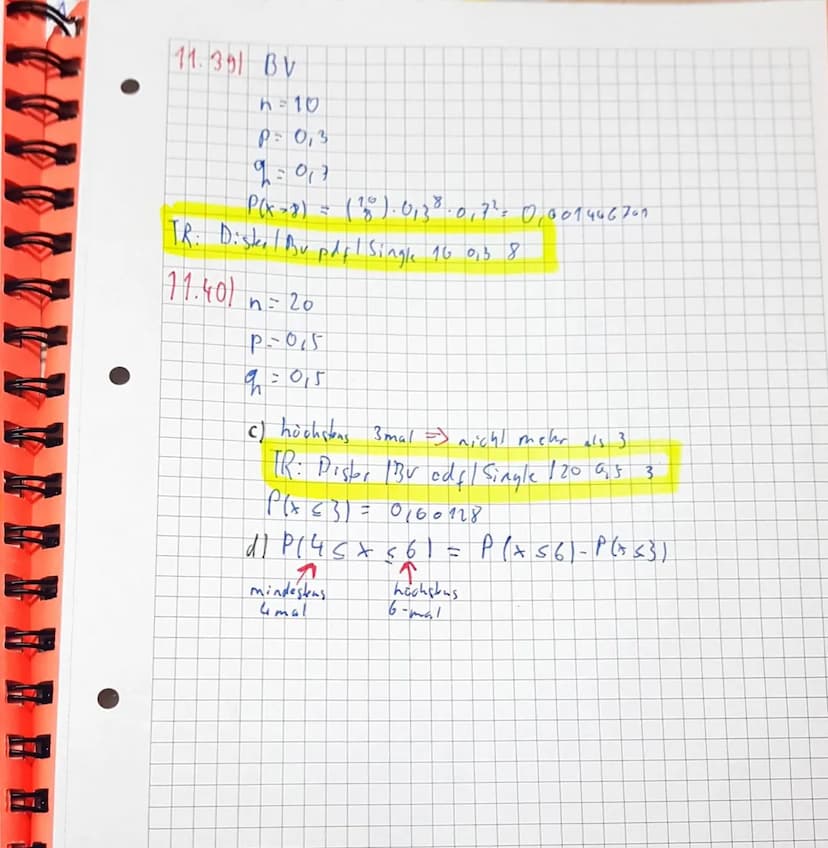 11.39) BV
n=10
p=0,3
q=0,7
P(x=8) = (10 8) · 0,3⁸ · 0,7² = 0,001446701
TR: Distr / Bv pdf / Single 10 0,3 8
11.40) n=20
p=0,5
q=0,5
c) höchstens 3mal => nicht mehr als 3
TR: Distr / Bv cdf / Single / 20 0,5 3
P(x ≤ 3) = 0,00128
d) P(4 ≤ x ≤ 6) = P(x ≤ 6) - P(x ≤ 3)
mindestens höchstens
4mal 6-mal